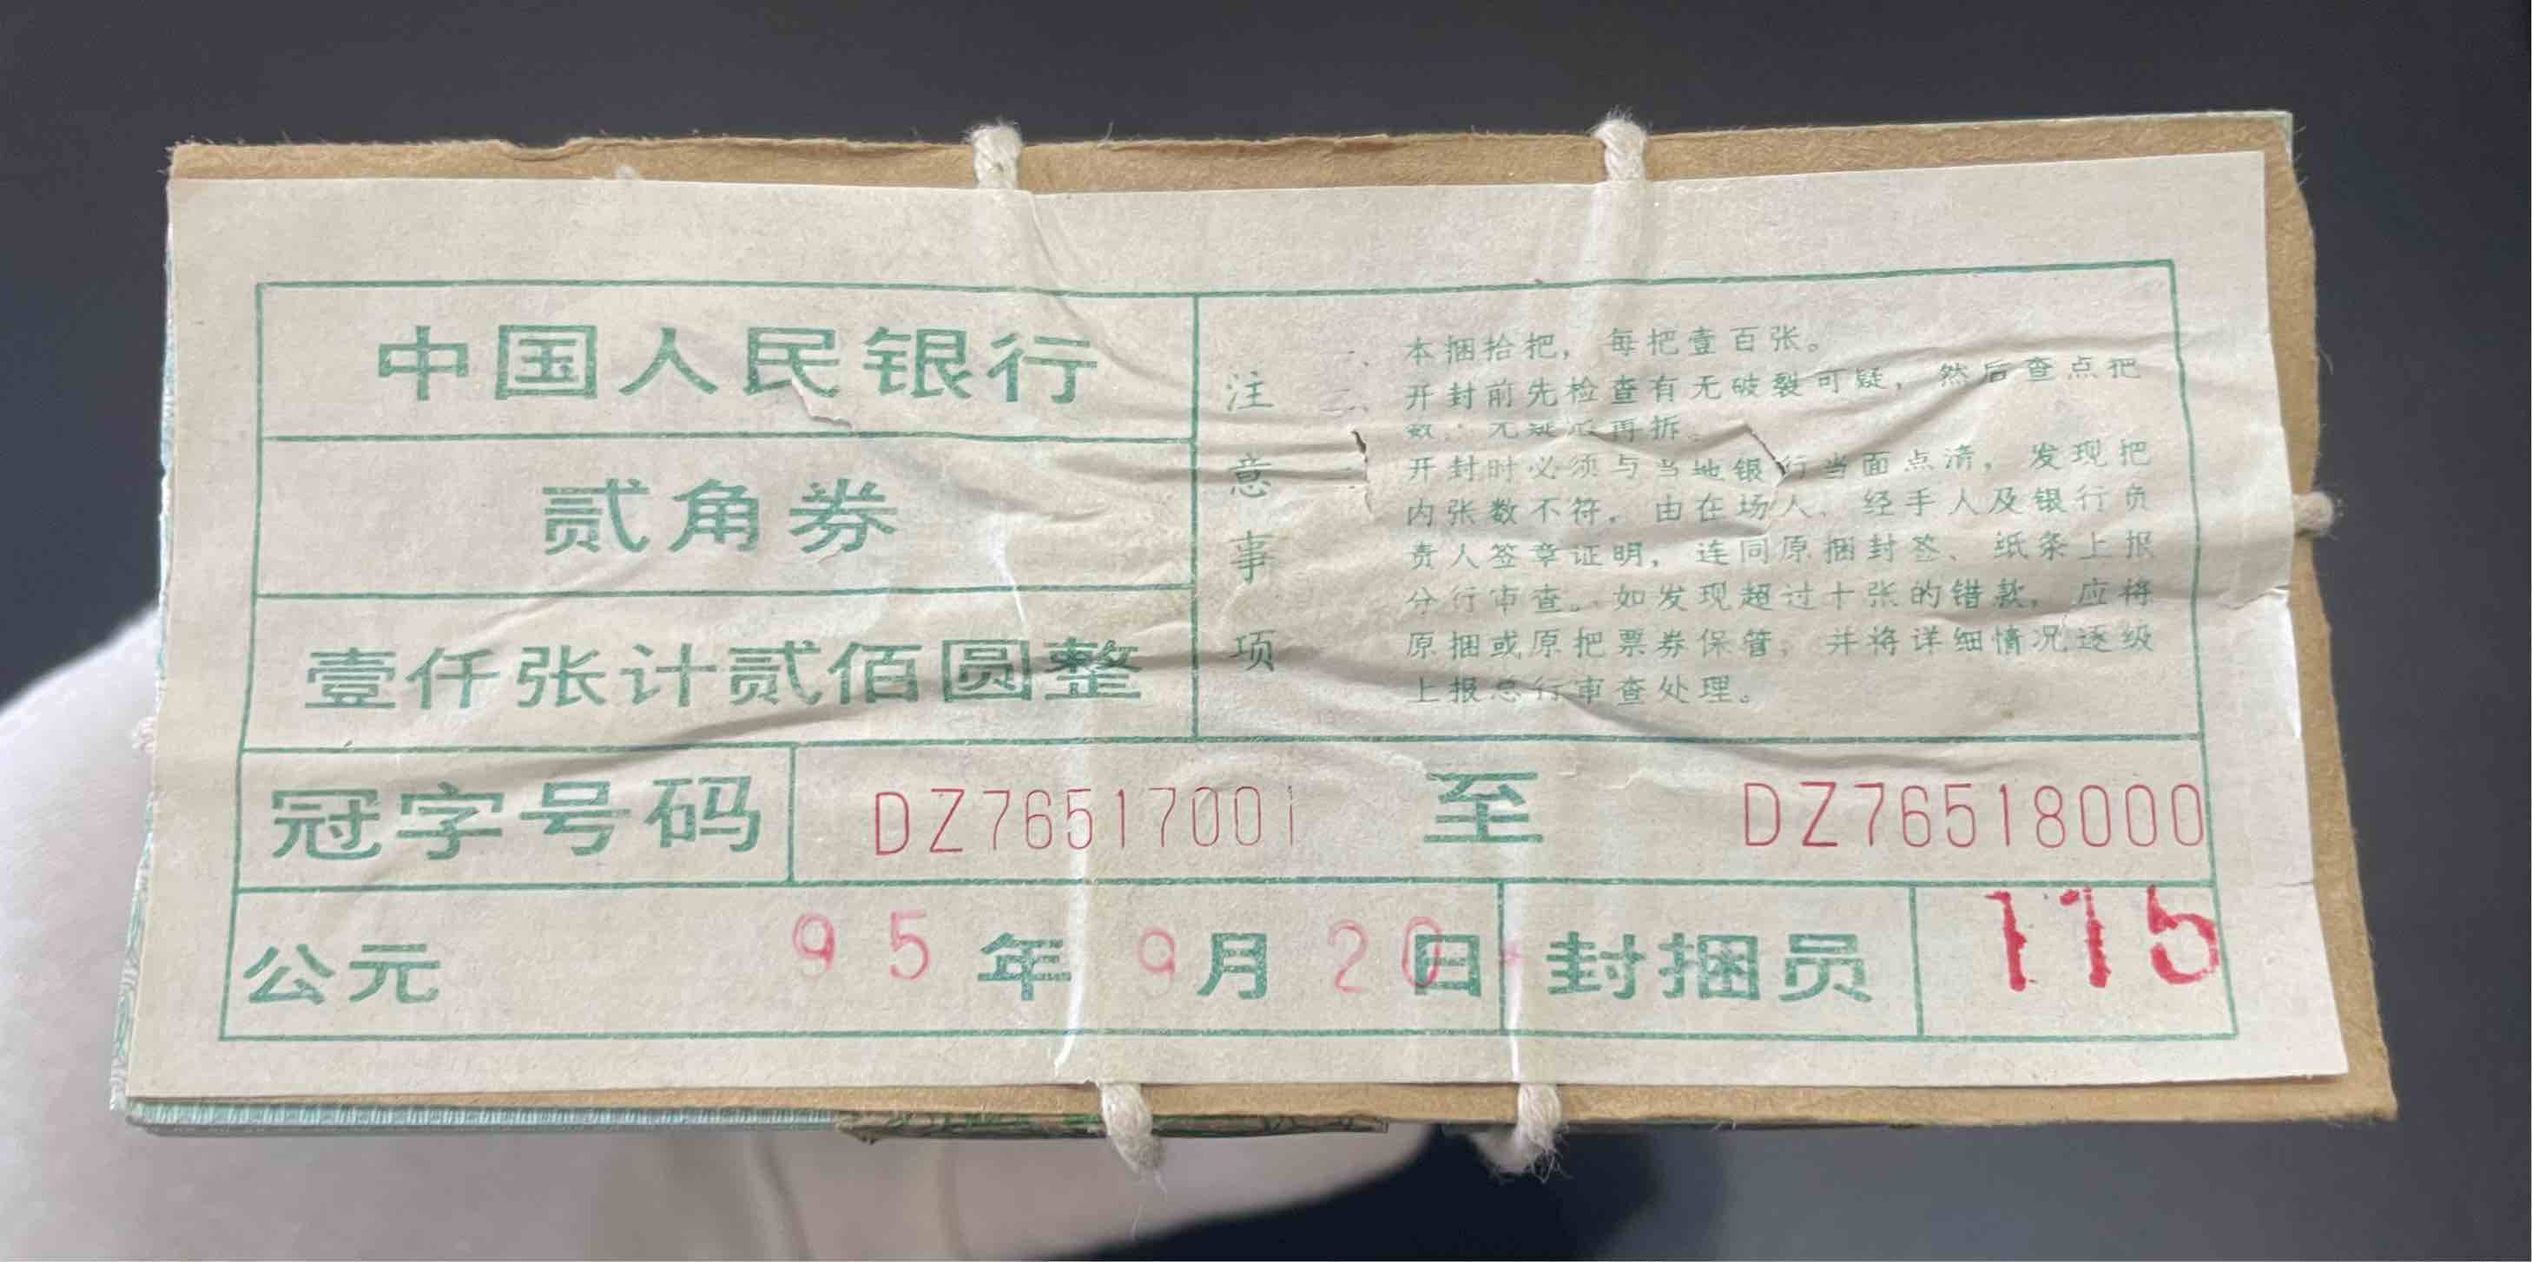 中国人民银行
贰角券
壹仟张计贰佰圆整
注意事项
一、本捆拾把，每把壹百张。
二、开封前先检查有无破裂可疑，然后查点把
数，无疑后再拆。
开封时必须与当地银行当面点清，发现把
内张数不符，由在场人、经手人及银行负
责人签章证明，连同原捆封签、纸条上报
分行审查。如发现超过十张的错款，应将
原捆或原把票券保管，并将详细情况逐级
上报总行审查处理。
冠字号码 DZ76517001 至 DZ76518000
公元 95年 9月 20日 封捆员 115